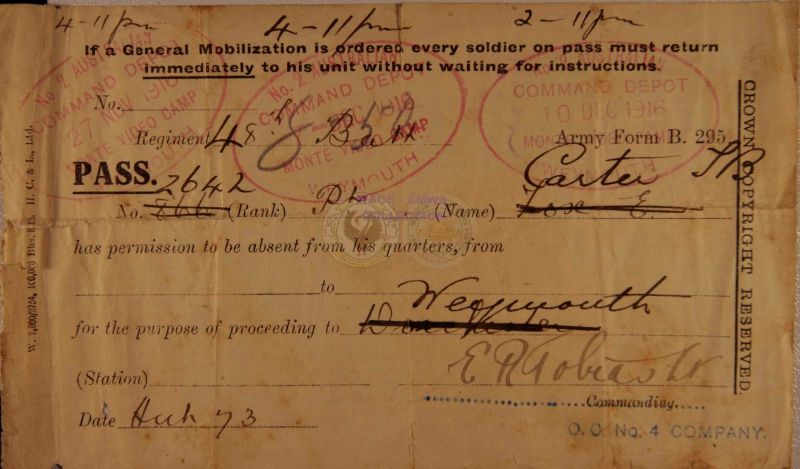 4-11pm 4-11pm 2-11pm
If a General Mobilization is ordered every soldier on pass must return
immediately to his unit without waiting for instructions.
No. 2 AUSTRALIAN
COMMAND DEPOT
27 NOV 1916
MONTE VIDEO CAMP
WEYMOUTH
No. 2 AUSTRALIAN
COMMAND DEPOT
DEC 1916
MONTE VIDEO CAMP
WEYMOUTH
COMMAND DEPOT
10 DEC 1916
MONTE VIDEO CAMP
WEYMOUTH
No.
Regiment 48th Batt Army Form B. 295.
PASS.
2642 Carter
No. 866 (Rank) Pte (Name) Cox E.
has permission to be absent from his quarters, from
to Weymouth
for the purpose of proceeding to Dorchester
(Station)
Commanding.
Date Hut 73
O.C. No. 4 COMPANY.
CROWN COPYRIGHT RESERVED
H. C. & L., Ltd.